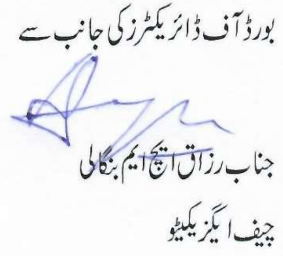 بورڈ آف ڈائریکٹرز کی جانب سے
جناب رزاق ایچ ایم بنگالی
چیف ایگزیکیٹو